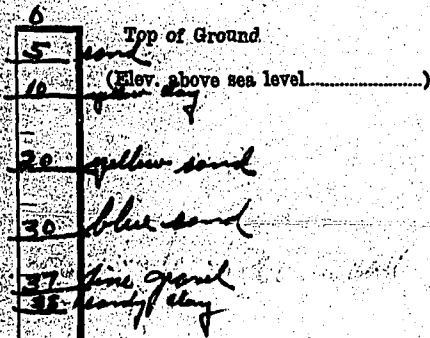 0
Top of Ground
5 sand
(Elev. above sea level....................)
10 yellow clay
20 yellow sand
30 blue sand
37 fine gravel
38 sandy clay